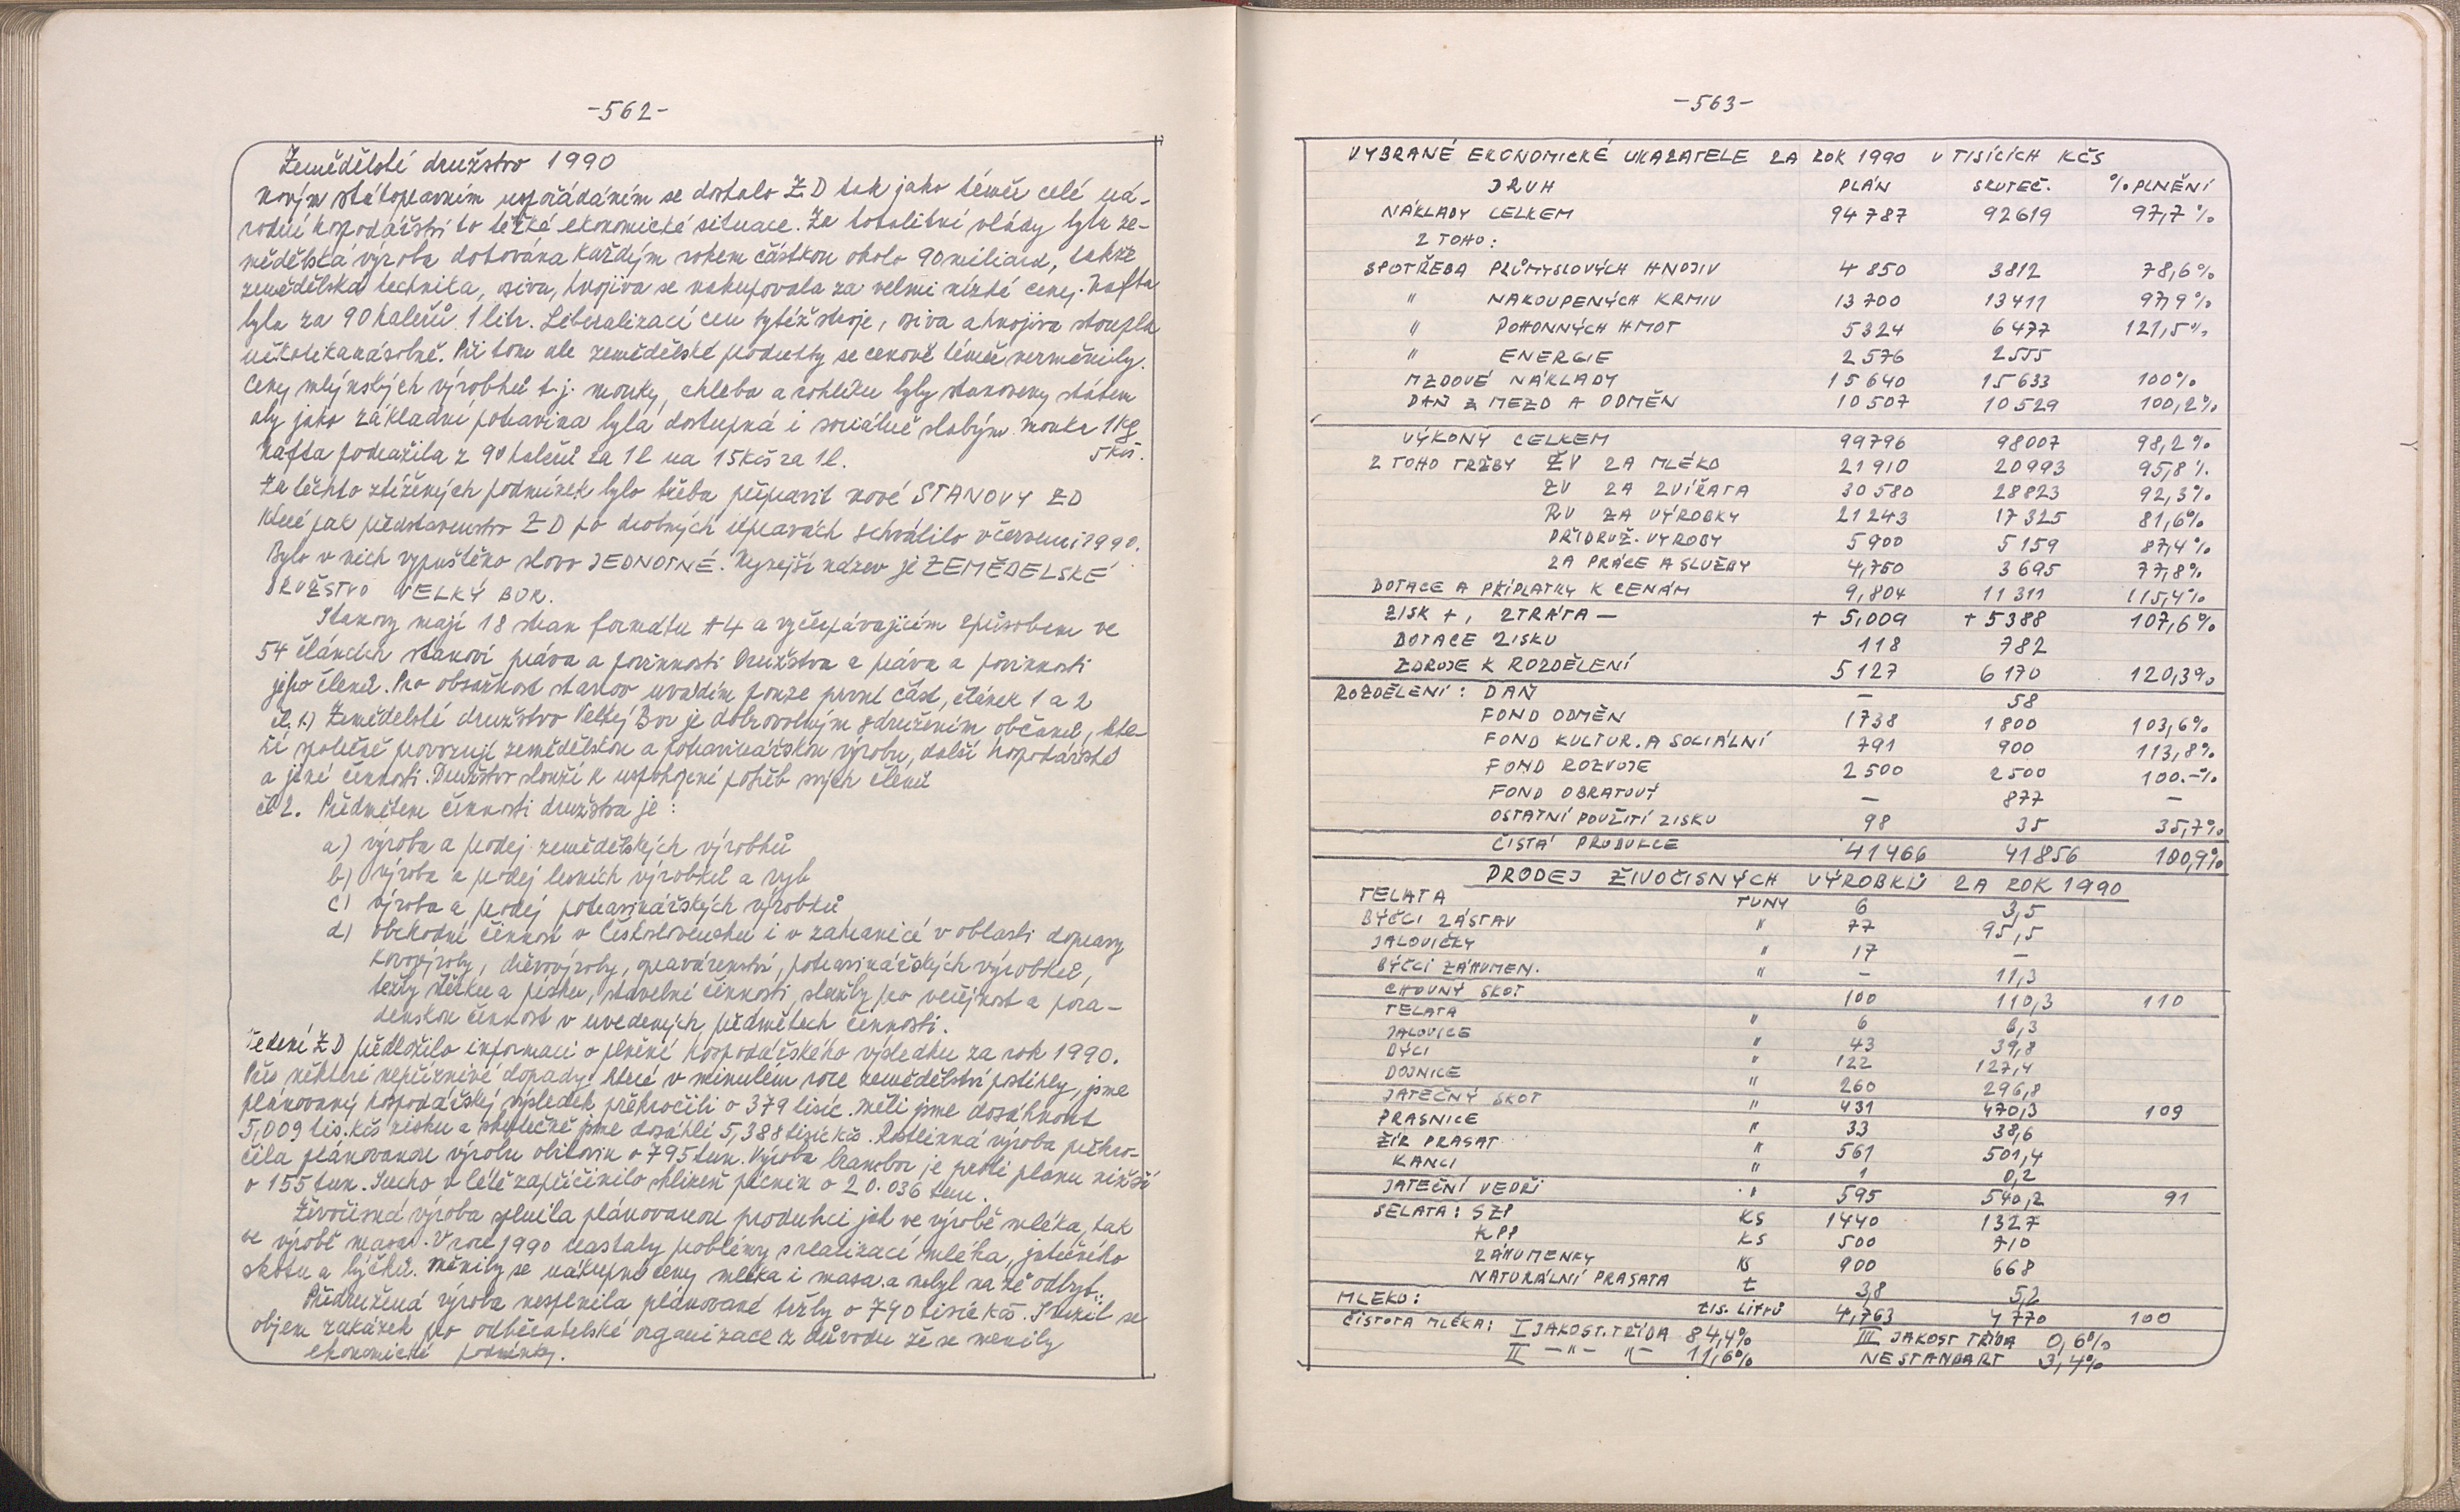 -562-
Zemědělské družstvo 1990
Novým státoprávním uspořádáním se dostalo ZD tak jako téměř celé ná-
rodní hospodářství do těžké ekonomické situace. Za totalitní vlády byla ze-
mědělská výroba dotována každým rokem částkou okolo 90 miliard, takže
zemědělská technika, osiva, hnojiva se nakupovala za velmi nízké ceny. Nafta
byla za 90 haléřů 1 litr. Liberalizací cen tytéž stroje, osiva a hnojiva stoupla
několikanásobně. Při tom ale zemědělské produkty se cenově téměř nezměnily.
Ceny mlýnských výrobků t.j. mouky, chleba a rohlíku byly stanoveny státem
aby jako základní potravina byla dostupná i sociálně slabým. Mouka 1Kg
5 Kčs.
Nafta podražila z 90 haléřů za 1l na 15 Kčs za 1l.
Za těchto ztížených podmínek bylo třeba připravit nové STANOVY ZD
které pak představenstvo ZD po drobných úpravách schválilo v červenci 1990.
Bylo v nich vypuštěno slovo JEDNOTNÉ. Nynější název je ZEMĚDELSKÉ
DRUŽSTVO VELKÝ BOR.
Stanovy mají 18 stran formátu A4 a vyčerpávajícím způsobem ve
54 článcích stanoví práva a povinnosti Družstva a práva a povinnosti
jeho členů. Pro obsažnost stanov uvádím pouze první část, článek 1 a 2
čl. 1.) Zemědělské družstvo Velký Bor je dobrovolným sdružením občanů, kte-
ří společně provozují zemědělskou a potravinářskou výrobu, další hospodářské
a jiné činnosti. Družstvo slouží k uspokojení potřeb svých členů
čl 2. Předmětem činnosti družstva je:
a) výroba a prodej zemědělských výrobků
b) výroba a prodej lesních výrobků a ryb
c) výroba a prodej potravinářských výrobků
d) obchodní činnost v Československu i v zahraničí v oblasti dopravy
kovovýroby, dřevovýroby, opravárenství, potravinářských výrobků,
těžby štěrku a písku, stavební činnosti, služby pro veřejnost a pora-
denskou činnost v uvedených předmětech činnosti.
Vedení ZD předložilo informaci o plnění hospodářského výsledku za rok 1990.
Přes některé nepříznivé dopady, které v minulém roce zemědělství postihly, jsme
plánovaný hospodářský výsledek překročili o 379 tisíc. Měli jsme dosáhnout
5,009 tis. Kčs zisku a skutečně jsme dosáhli 5,388 tisíc Kčs. Rostlinná výroba překro-
čila plánovanou výrobu obilovin o 795 tun. Výroba brambor je proti plánu nižší
o 155 tun. Sucho v létě zapříčinilo sklizeň pícnin o 20.036 tun.
Živočisná výroba splnila plánovanou produkci jak ve výrobě mléka, tak
ve výrobě masa. V roce 1990 nastaly problémy s realizací mléka, jatečného
skotu a býčků. Měnily se nákupní ceny mléka i masa a nebyl na ně odbyt.
Přidružená výroba nesplnila plánované tržby o 790 tisíc Kčs. Snížil se
objem zakázek pro odběratelské organizace z důvodu že se měnily
ekonomické podmínky.
-563-
VYBRANÉ EKONOMICKÉ UKAZATELE ZA ROK 1990 V TISÍCÍCH KČS
DRUH PLÁN SKUTEČ. % PLNĚNÍ
NÁKLADY CELKEM 94787 92619 97,7%
Z TOHO:
SPOTŘEBA PRŮMYSLOVÝCH HNOJIV 4850 3812 78,6%
" NAKOUPENÝCH KRMIV 13700 13411 97,9%
" POHONNÝCH HMOT 5324 6477 121,5%
" ENERGIE 2576 2555
MZDOVÉ NÁKLADY 15640 15633 100%
DAŇ Z MEZD A ODMĚN 10507 10529 100,2%
VÝKONY CELKEM 99796 98007 98,2%
Z TOHO TRŽBY ŽV ZA MLÉKO 21910 20993 95,8%
ŽV ZA ZVÍŘATA 30580 28823 92,3%
RV ZA VÝROBKY 21243 17325 81,6%
PŘIDRUŽ. VÝROBY 5900 5159 87,4%
ZA PRÁCE A SLUŽBY 4,750 3695 77,8%
DOTACE A PŘÍPLATKY K CENÁM 9,804 11311 115,4%
ZISK +, ZTRÁTA - + 5,009 + 5388 107,6%
DOTACE ZISKU 118 782
ZDROJE K ROZDĚLENÍ 5127 6170 120,3%
ROZDĚLENÍ: DAŇ - 58
FOND ODMĚN 1738 1800 103,6%
FOND KULTUR. A SOCIÁLNÍ 791 900 113,8%
FOND ROZVOJE 2500 2500 100.-%
FOND OBRATOVÝ - 877 -
OSTATNÍ POUŽITÍ ZISKU 98 35 35,7%
ČISTÁ PRODUKCE 41466 41856 100,9%
PRODEJ ŽIVOČISNÝCH VÝROBKŮ ZA ROK 1990
TELATA TUNY 6 3,5
BÝČCI ZÁSTAV " 77 95,5
JALOVIČKY " 17 -
BÝČCI ZÁHUMEN. " - 11,3
CHOVNÝ SKOT 100 110,3 110
TELATA " 6 6,3
JALOVICE " 43 39,8
BÝCI " 122 127,4
DOJNICE " 260 296,8
JATEČNÝ SKOT " 431 470,3 109
PRASNICE " 33 38,6
ŽÍR PRASAT " 561 501,4
KANCI " 1 0,2
JATEČNÍ VEPŘI " 595 540,2 91
SELATA: SZP KS 1440 1327
KPP KS 500 710
ZÁHUMENKY KS 900 668
NATURÁLNÍ PRASATA t 3,8 5,2
MLÉKO: TIS. LITRŮ 4,763 4770 100
ČISTOTA MLÉKA: I JAKOST. TŘÍDA 84,4% III JAKOST TŘÍDA 0,6%
II -"- "- 11,6% NESTANDART 3,4%